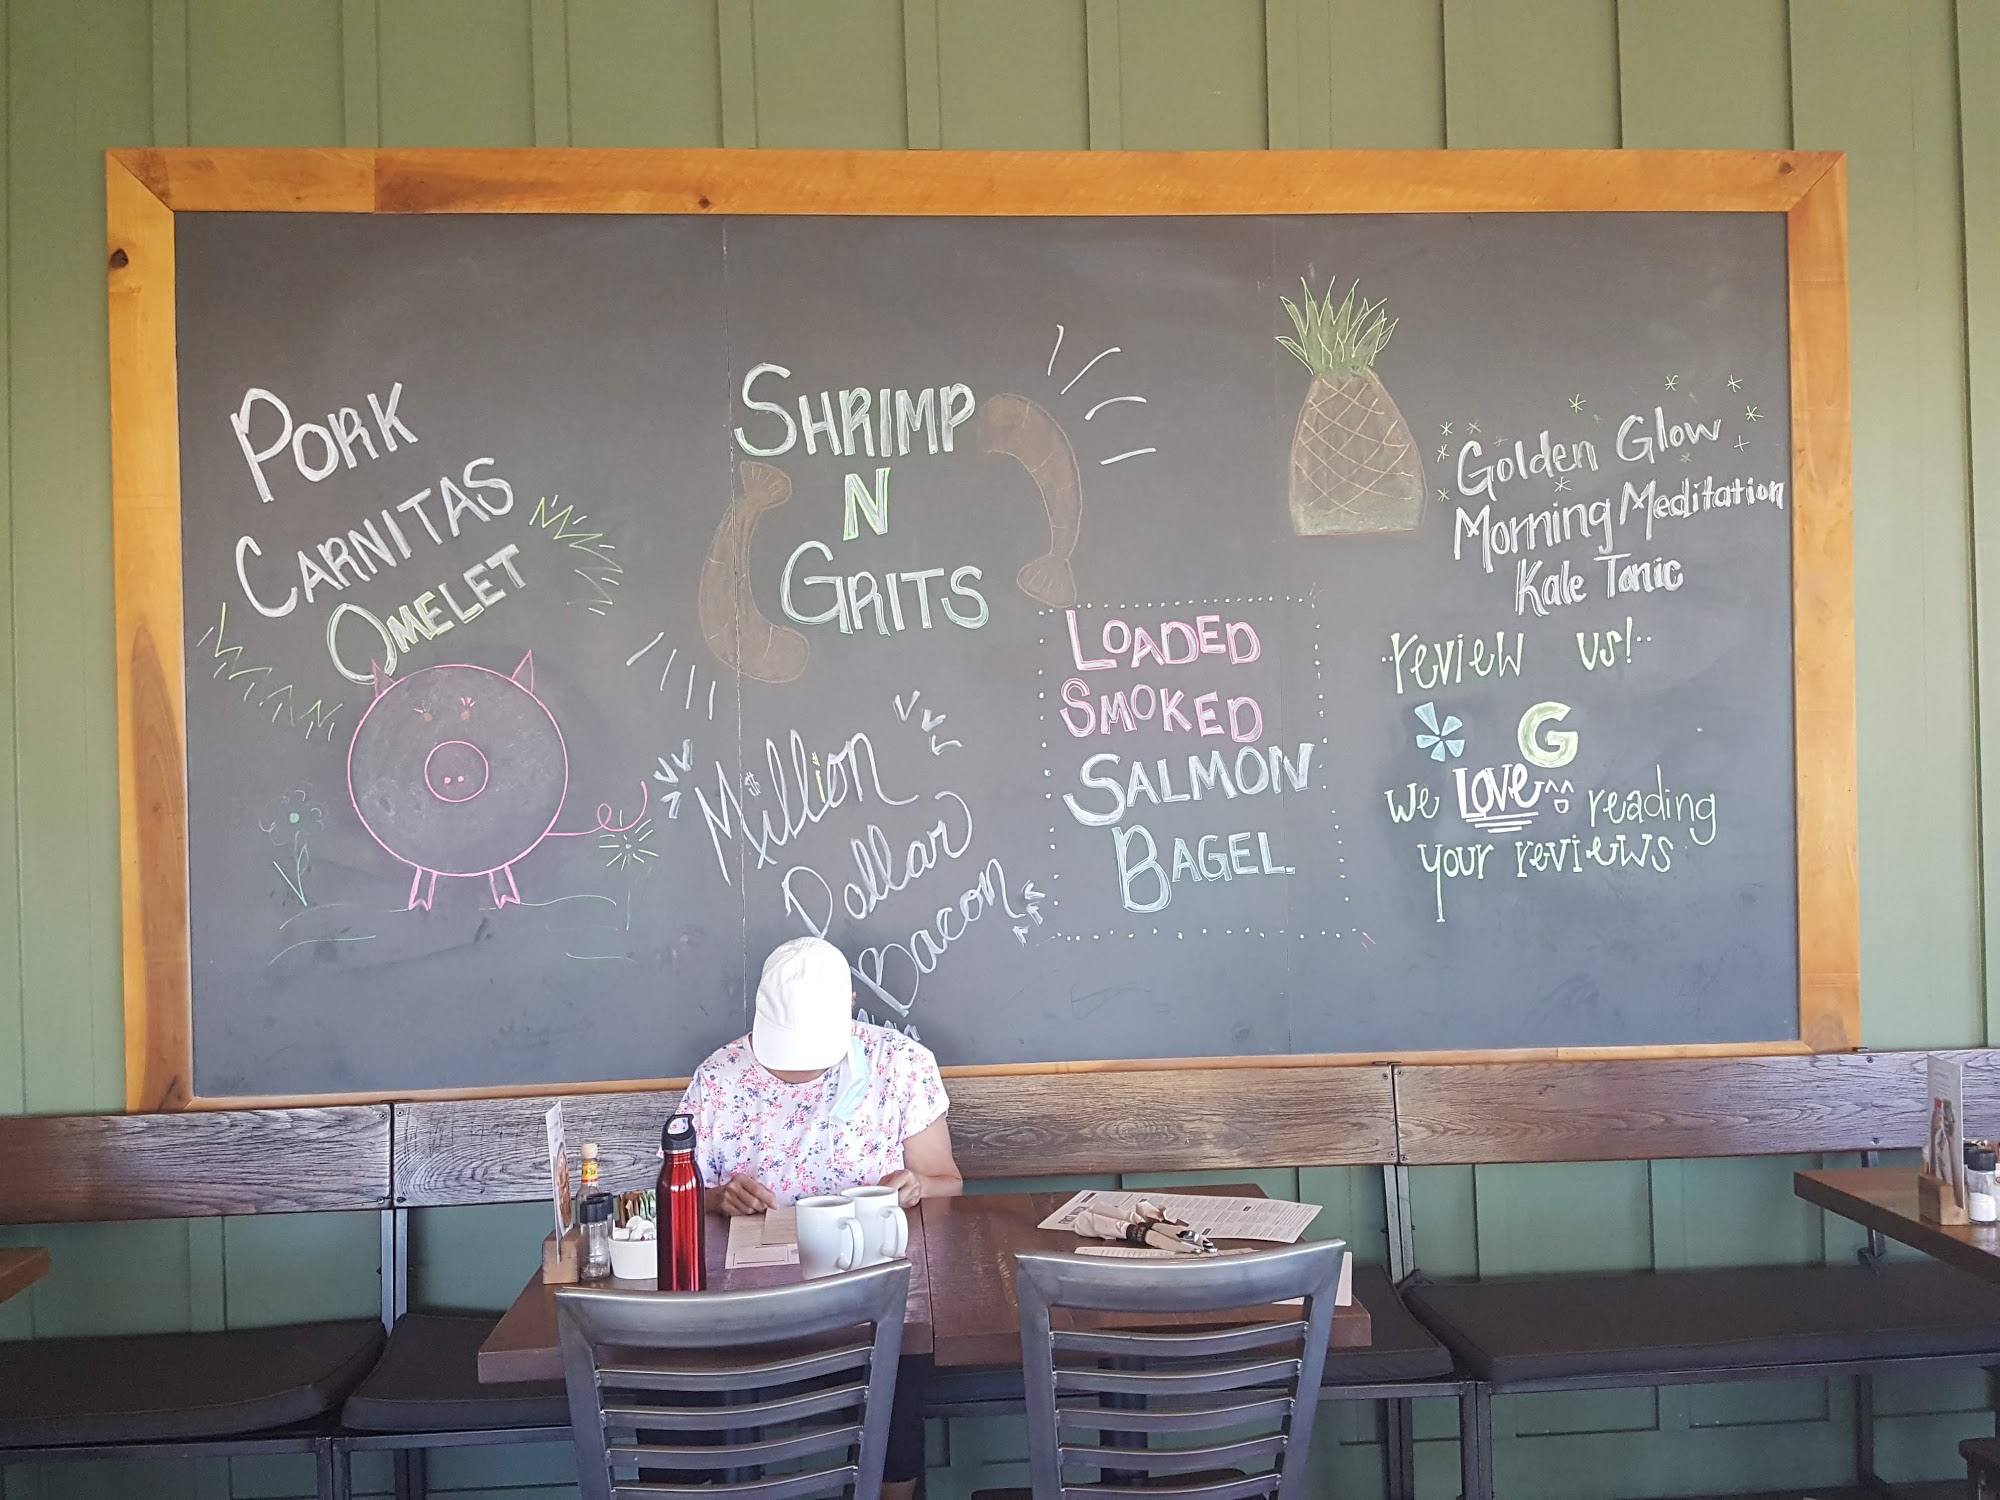 PORK
CARNITAS
OMELET
SHRIMP
N
GRITS
Million
Dollar
Bacon
LOADED
SMOKED
SALMON
BAGEL
Golden Glow
Morning Meditation
Kale Tonic
review us!
G
we LOVE reading
your reviews